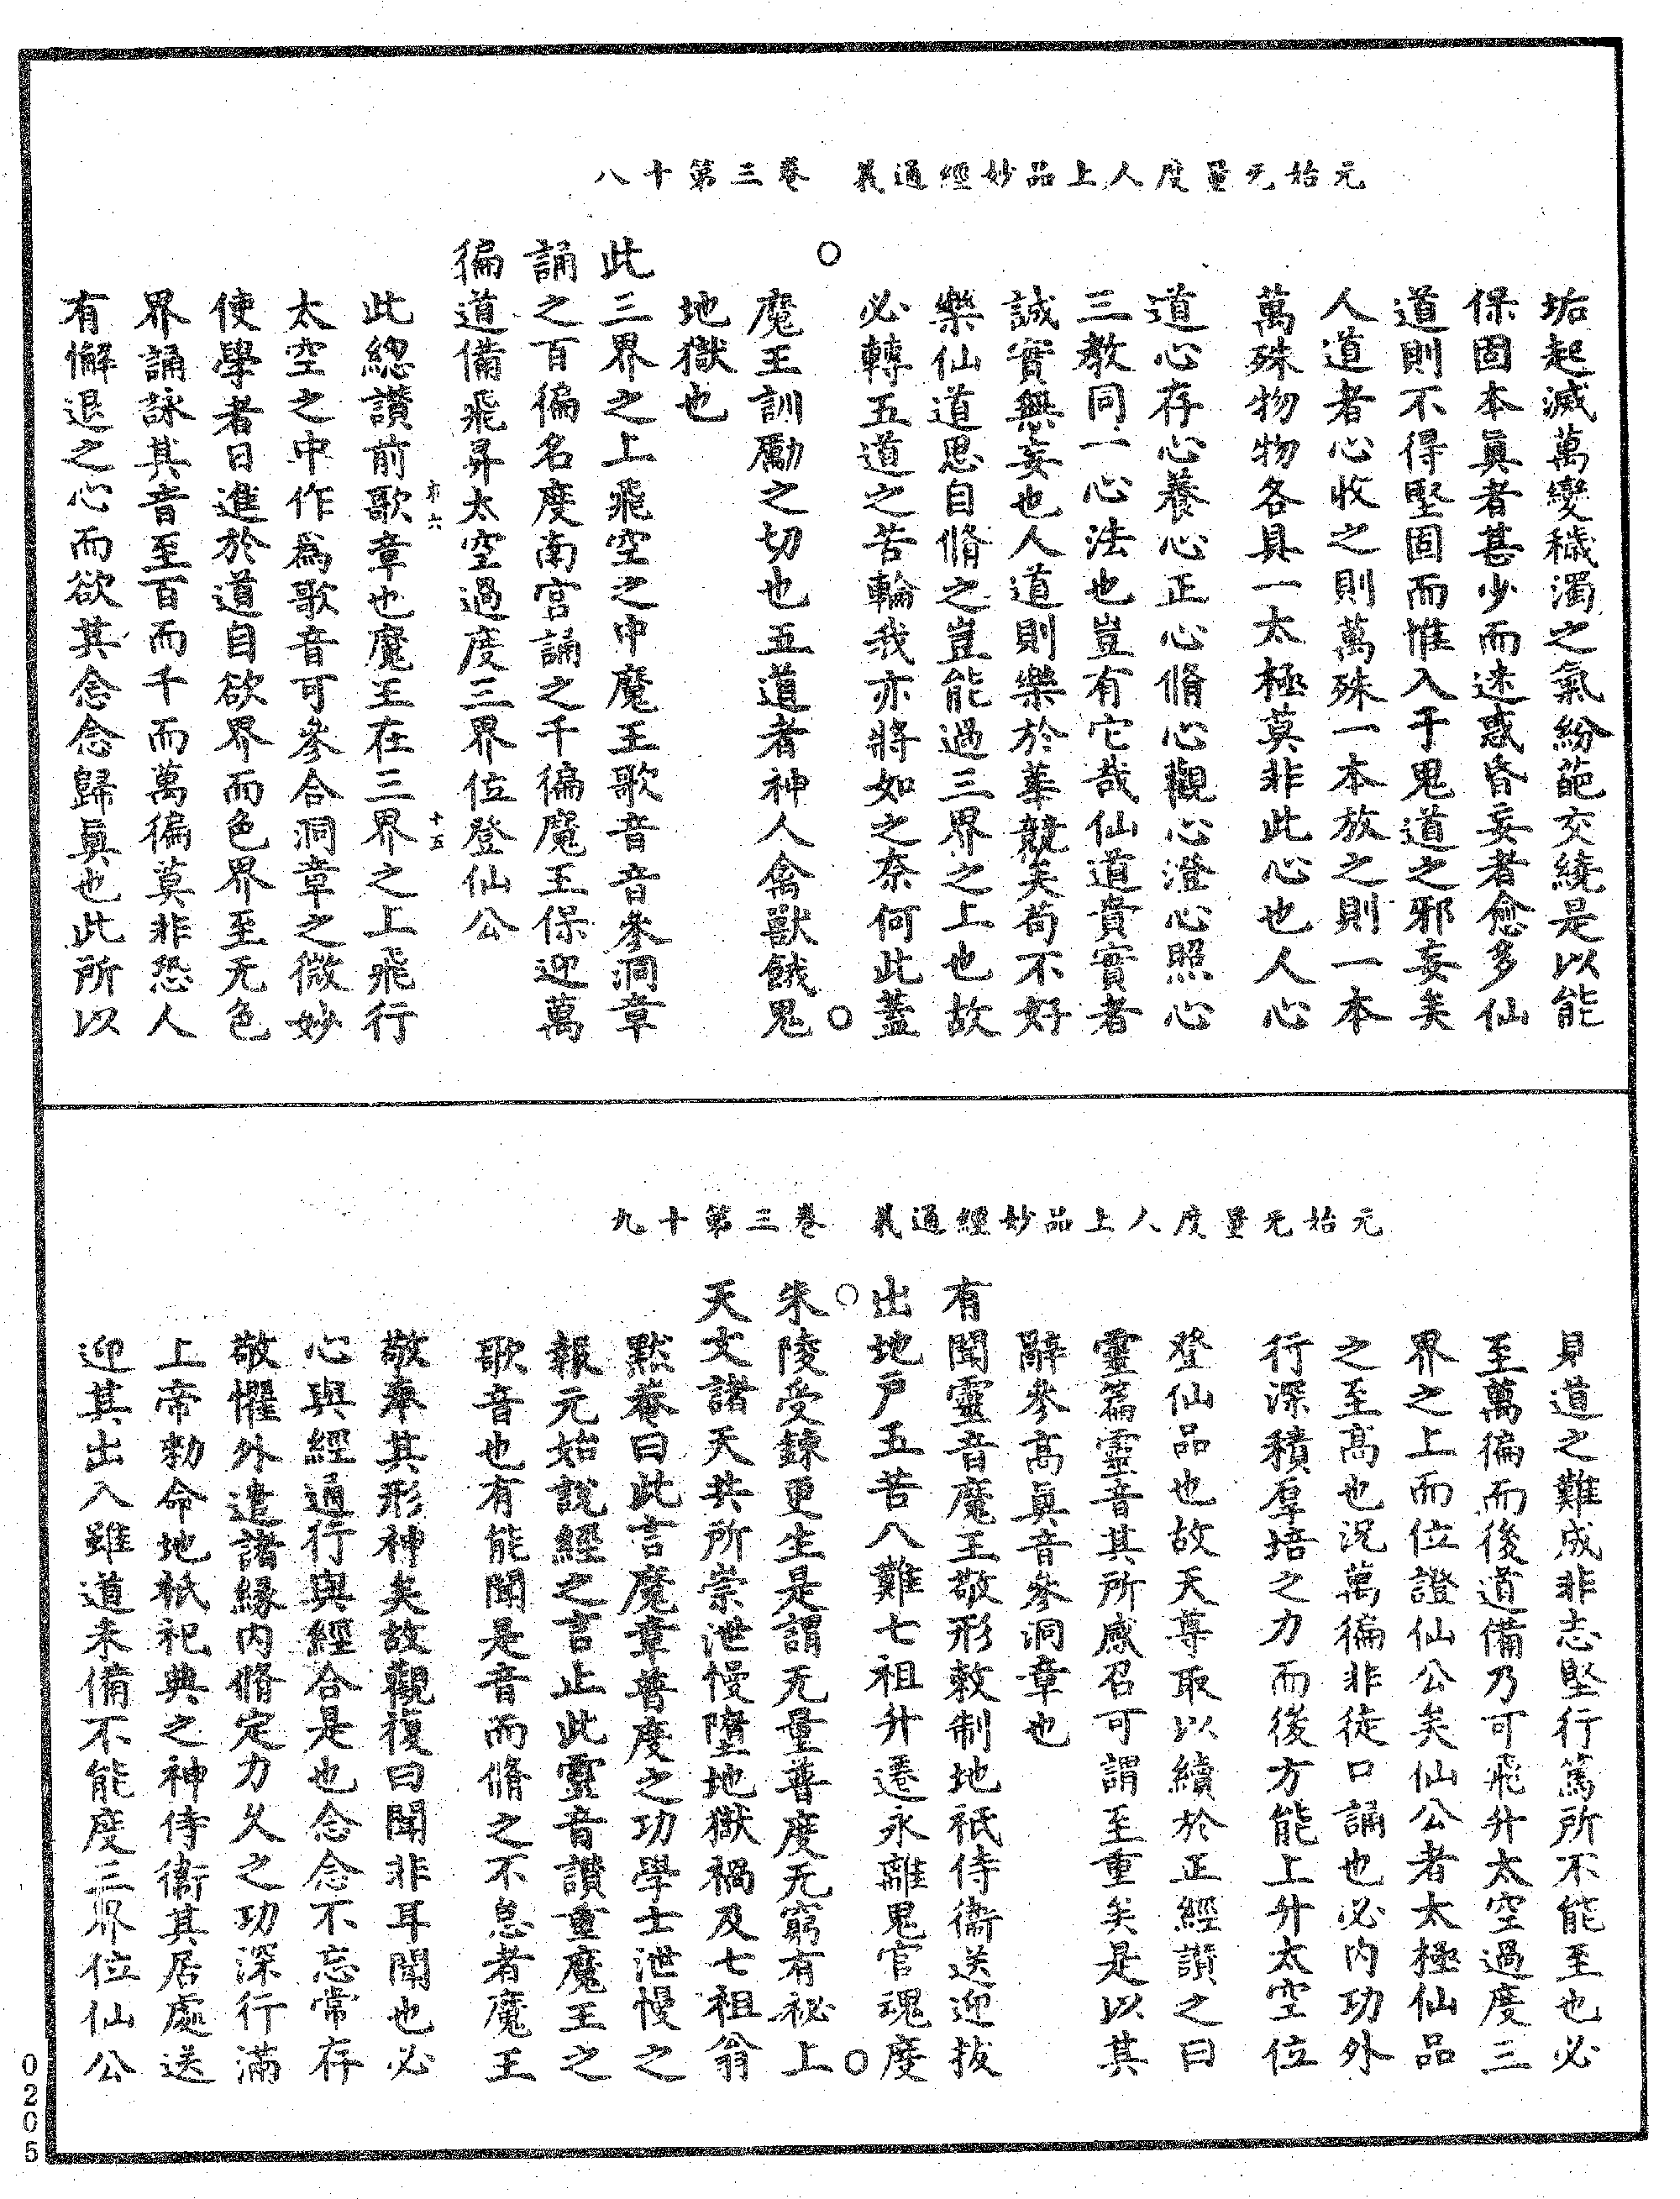 元始无量度人上品妙經通義　卷三第十八
垢起滅萬變穢濁之氣紛葩交繞是以能
保固本眞者甚少而迷惑昏妄者愈多仙
道則不得堅固而惟入于鬼道之邪妄矣
人道者心收之則萬殊一本放之則一本
萬殊物物各具一太極莫非此心也人心
道心存心養心正心脩心觀心澄心照心
三教同一心法也豈有它哉仙道貴實者
誠實無妄也人道則樂於華競矣苟不好
樂仙道思自脩之豈能過三界之上也故
必轉五道之苦輪我亦將如之奈何此蓋
○魔王訓勵之切也五道者神人禽獸餓鬼○
地獄也
此三界之上飛空之中魔王歌音音參洞章
誦之百徧名度南宮誦之千徧魔王保迎萬
徧道備飛昇太空過度三界位登仙公
此緫讃前歌章也魔王在三界之上飛行
太空之中作爲歌音可參合洞章之微妙
使學者日進於道自欲界而色界至无色
界誦詠其音至百而千而萬徧莫非恐人
有懈退之心而欲其念念歸眞也此所以
元始无量度人上品妙經通義　卷三第十九
見道之難成非志堅行篤所不能至也必
至萬徧而後道備乃可飛升太空過度三
界之上而位證仙公矣仙公者太極仙品
之至高也况萬徧非徒口誦也必內功外
行深積厚培之力而後方能上升太空位
登仙品也故天尊取以續於正經讃之曰
靈篇靈音其所感召可謂至重矣是以其
辭參高眞音參洞章也
有聞靈音魔王敬形敕制地祇侍衞送迎拔
出地戸五苦八難七祖升遷永離鬼官魂度
○朱陵受鍊更生是謂无量普度无窮有祕上○
天文諸天共所崇泄慢墮地獄禍及七祖翁
默菴曰此言魔章普度之功學士泄慢之
報元始說經之言止此靈音讃重魔王之
歌音也有能聞是音而脩之不怠者魔王
敬奉其形神矣故觀復曰聞非耳聞也必
心與經通行與經合是也念念不忘常存
敬懼外遣諸緣內脩定力久之功深行滿
上帝勑命地祇祀典之神侍衞其居處送
迎其出入雖道未備不能度三界位仙公
0205